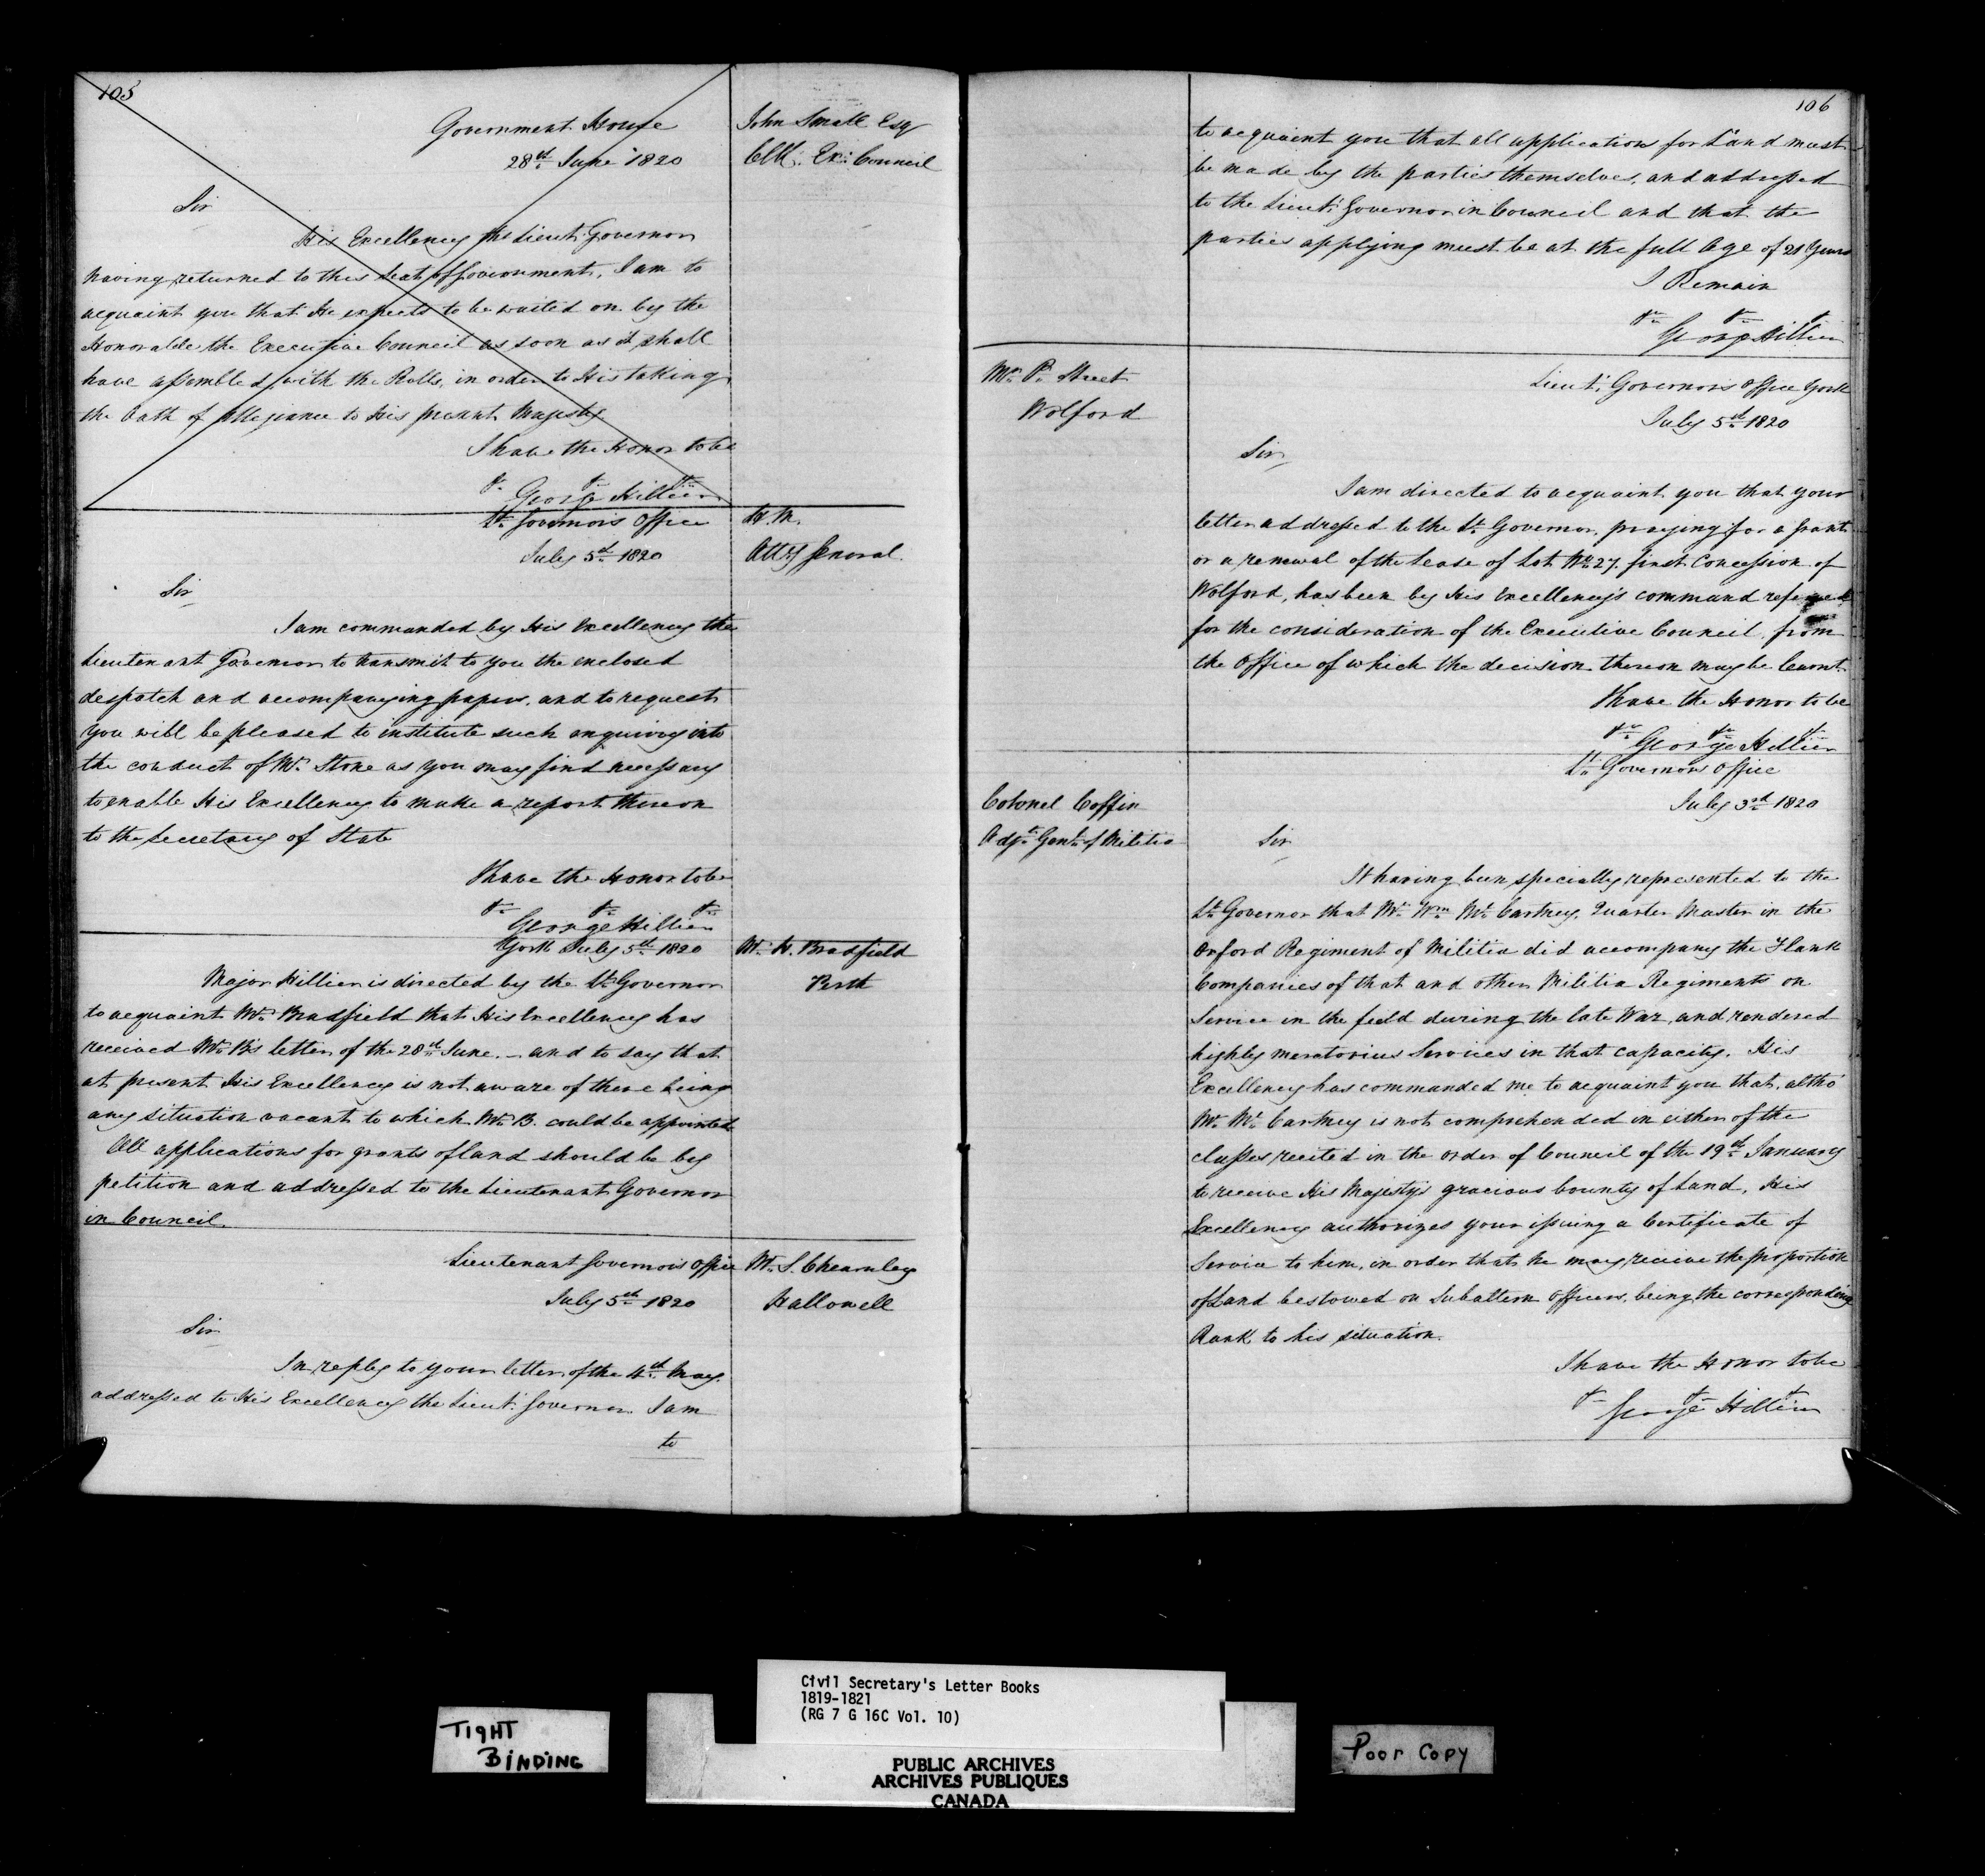 105
Government House
28th June 1820
John Small Esqr
Clk: Ex: Council
Sir
His Excellency the Lieut: Governor
having returned to this Seat of Government, I am to
acquaint you that He expects to be waited on by the
Honorable the Executive Council as soon as it shall
have assembled with the Rolls, in order to His taking
the Oath of Allegiance to His present Majesty
I have the Honor to be
&c &c &c
George Hillier
Lt. Governor's Office
July 5th 1820
H. M.
Atty General
Sir
I am commanded by His Excellency the
Lieutenant Governor to transmit to you the enclosed
despatch and accompanying papers, and to request
you will be pleased to institute such enquiry into
the conduct of Mr. Stone as you may find necessary
to enable His Excellency to make a report thereon
to the Secretary of State
I have the Honor to be
&c &c &c
George Hillier
York July 5th 1820
Mr. H. Bradfield
Perth
Major Hillier is directed by the Lt Governor
to acquaint Mr. Bradfield that His Excellency has
received Mr. B's letter of the 28th June. – and to say that
at present His Excellency is not aware of there being
any situation vacant to which Mr. B. could be appointed
All applications for grants of Land should be by
petition and addressed to the Lieutenant Governor
in Council.
Lieutenant Governor's Office
July 5th 1820
Mr. S. Chearnley
Hallowell
Sir
In reply to your letter of the 4th May.
addressed to His Excellency the Lieut: Governor I am
to
106
to acquaint you that all applications for Land must
be made by the parties themselves, and addressed
to the Lieut: Governor in Council and that the
parties applying must be at the full Age of 21 Years
I Remain
&c &c &c
George Hillier
Mr. P. Street
Wolford
Lieut: Governor's Office York
July 5th 1820
Sir
I am directed to acquaint you that your
letter addressed to the Lt. Governor, praying for a grant
or a renewal of the Lease of Lot No. 27. first Concession of
Wolford, has been by His Excellency's command referred
for the consideration of the Executive Council from
the Office of which the decision thereon may be learnt.
I have the Honor to be
&c &c &c
George Hillier
Lt. Governors Office
July 3rd 1820
Colonel Coffin
Adjt. Genl. of Militia
Sir
It having been specially represented to the
Lt. Governor that Mr. Wm. Mc. Cartney, Quarter Master in the
Oxford Regiment of Militia did accompany the Flank
Companies of that and other Militia Regiments on
Service in the field during the late War, and rendered
highly meratorius Services in that capacity. His
Excellency has commanded me to acquaint you that, altho'
Mr. Mc. Cartney is not comprehended in either of the
classes recited in the order of Council of the 19th January
to receive His Majesty's gracious bounty of Land, His
Excellency authorizes your issuing a Certificate of
Service to him, in order that he may receive the proportion
of Land bestowed on Subaltern Officers, being the corresponding
Rank to his situation.
I have the Honor to be
&c &c &c
George Hillier
Civil Secretary's Letter Books
1819-1821
(RG 7 G 16C Vol. 10)
TIGHT
BINDING
PUBLIC ARCHIVES
ARCHIVES PUBLIQUES
CANADA
Poor Copy